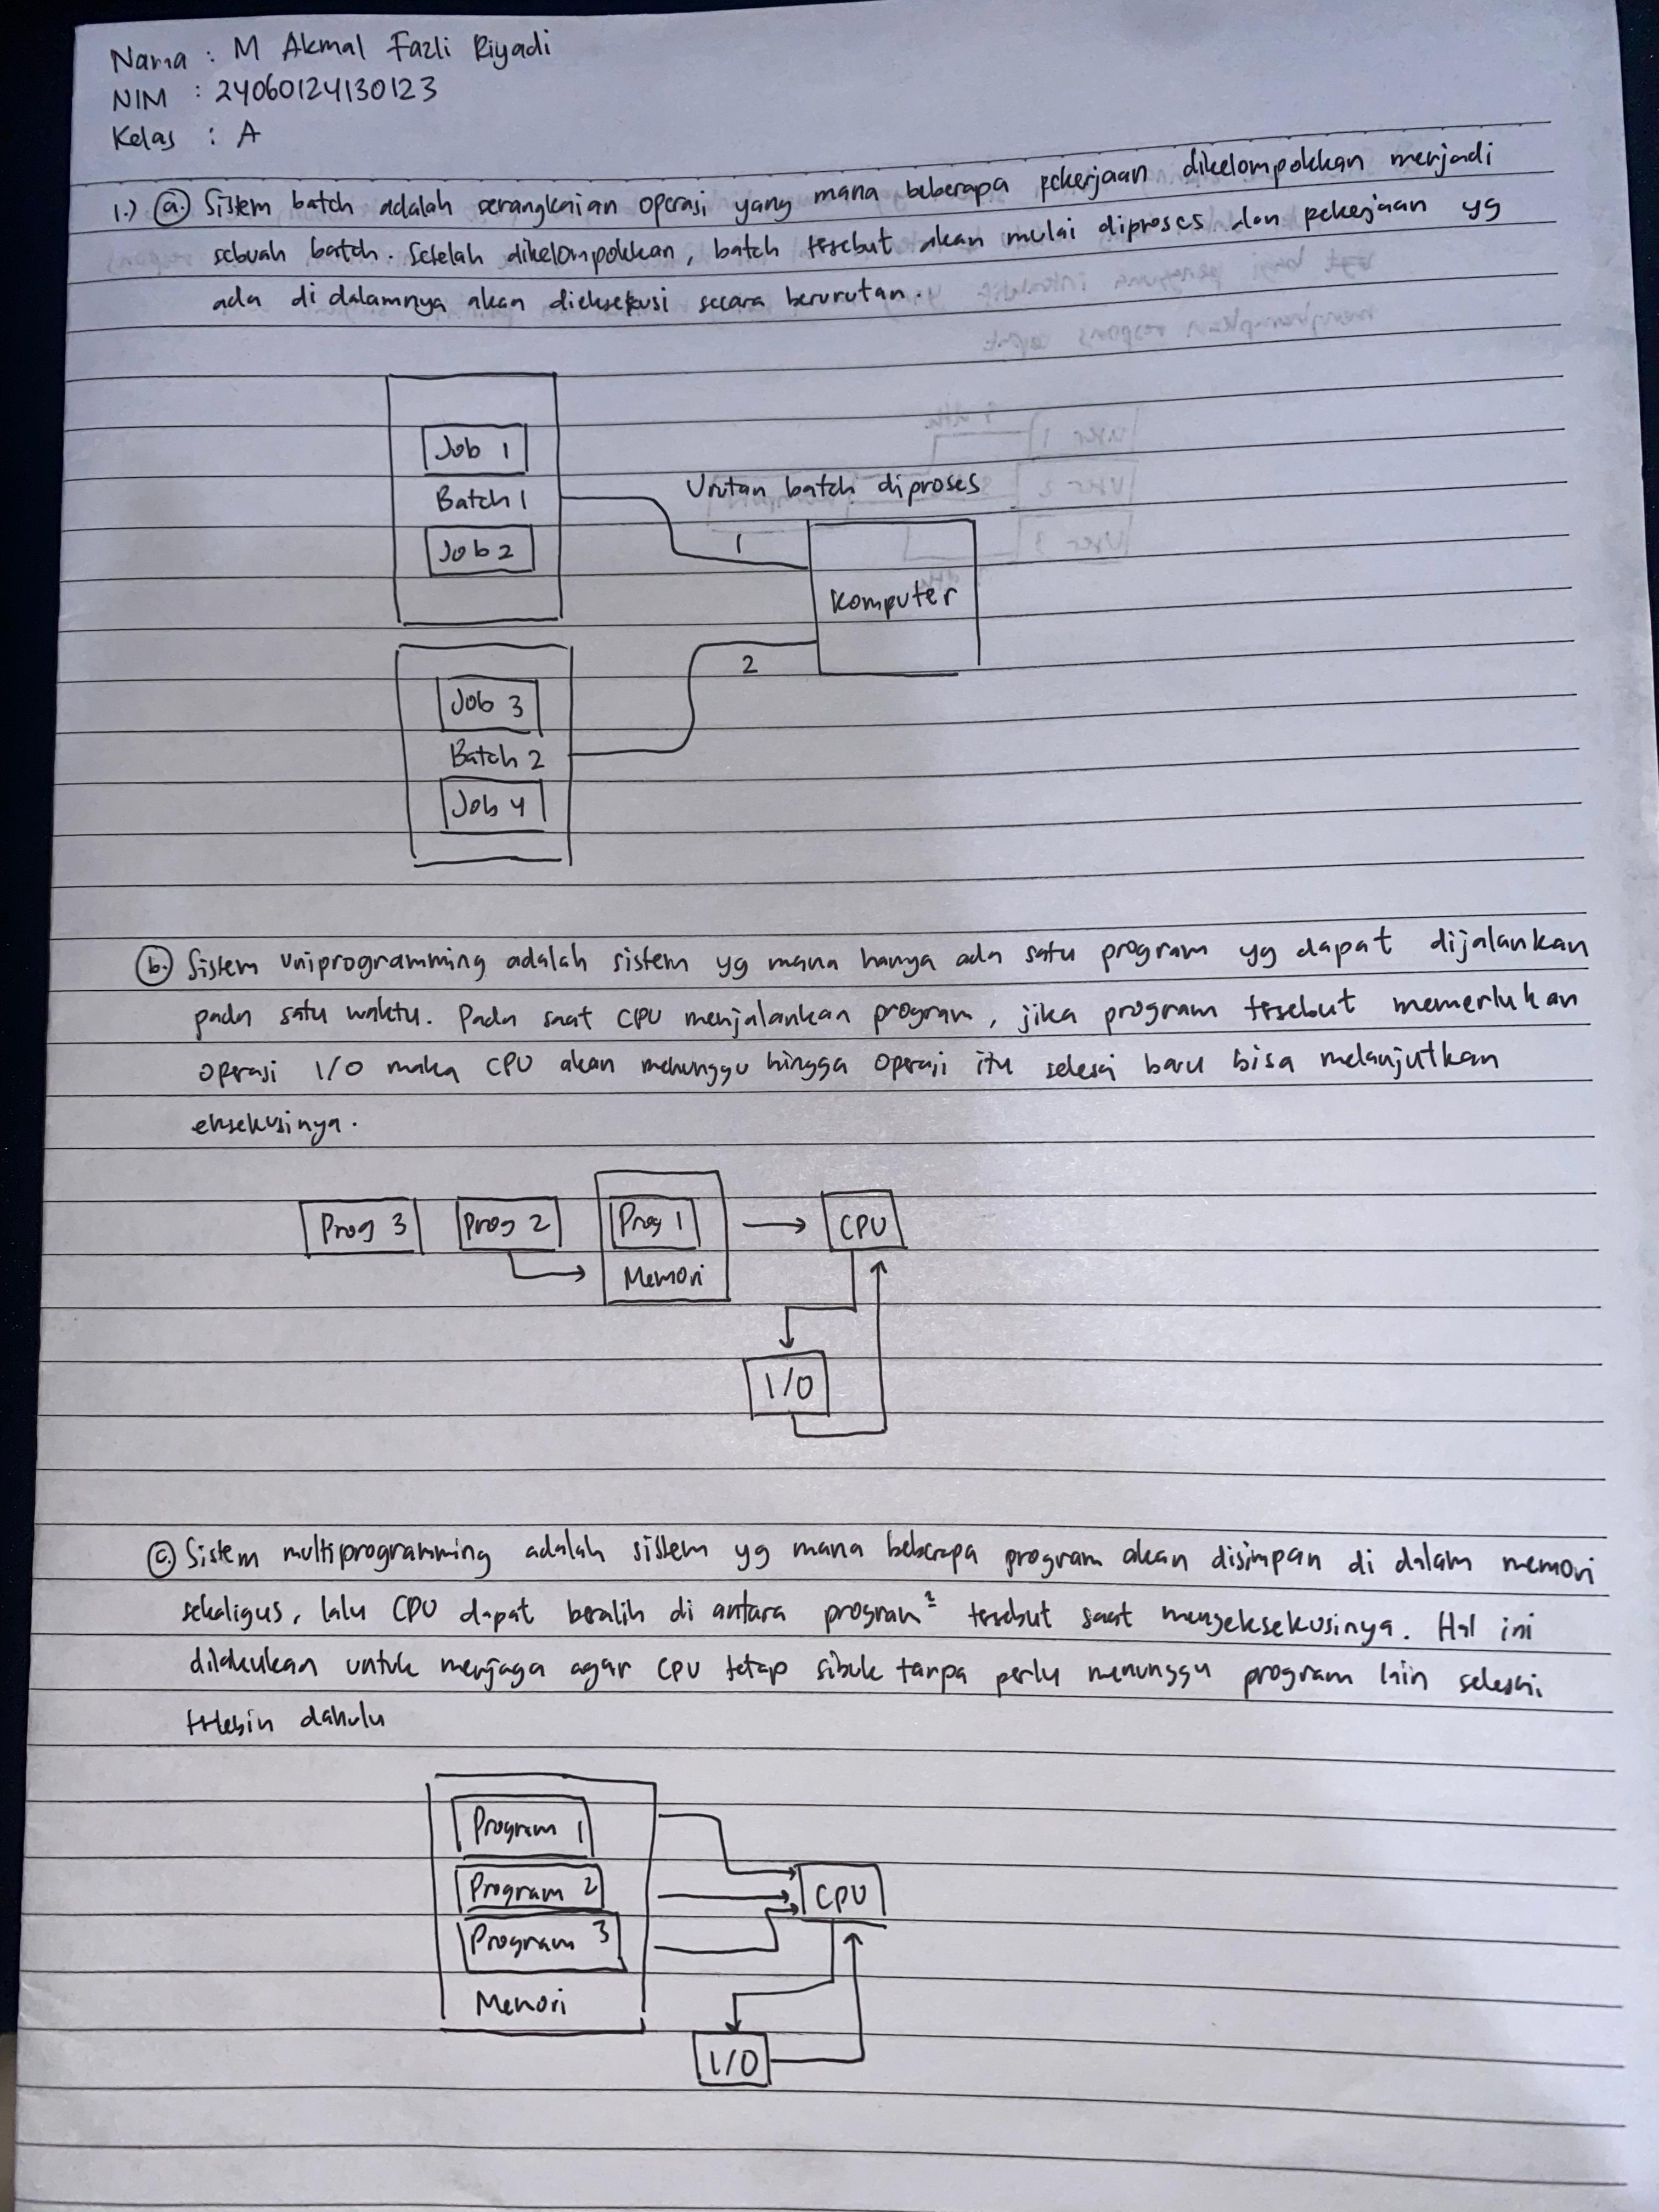 Nama : M Akmal Fazli Riyadi
NIM : 24060124130123
Kelas : A
1.) a. Sistem batch adalah serangkaian operasi yang mana beberapa pekerjaan dikelompokkan menjadi
sebuah batch. Setelah dikelompokkan, batch tersebut akan mulai diproses dan pekerjaan yg
ada di dalamnya akan dieksekusi secara berurutan.
Job 1
Batch 1
Job 2
Urutan batch diproses
1
Komputer
2
Job 3
Batch 2
Job 4
b. Sistem uniprogramming adalah sistem yg mana hanya ada satu program yg dapat dijalankan
pada satu waktu. Pada saat CPU menjalankan program, jika program tersebut memerlukan
operasi I/O maka CPU akan menunggu hingga operasi itu selesai baru bisa melanjutkan
eksekusinya.
Prog 3 Prog 2 Prog 1 CPU
Memori
I/O
c. Sistem multiprogramming adalah sistem yg mana beberapa program akan disimpan di dalam memori
sekaligus, lalu CPU dapat beralih di antara program² tersebut saat mengeksekusinya. Hal ini
dilakukan untuk menjaga agar CPU tetap sibuk tanpa perlu menunggu program lain selesai
terlebih dahulu
Program 1
Program 2
CPU
Program 3
Memori
I/O